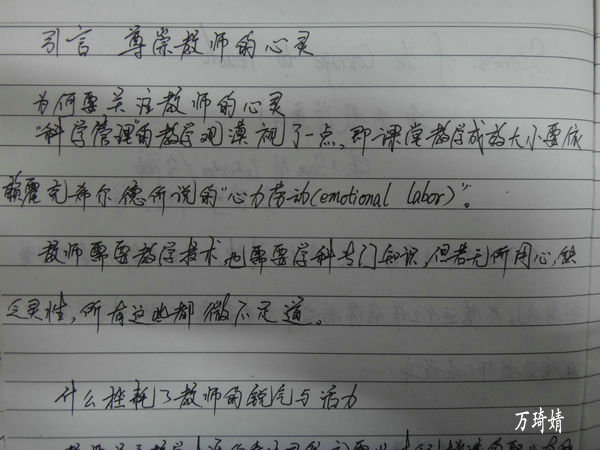 引言 尊崇教师的心灵
为何要关注教师的心灵
"科学管理"的教学观漠视了一点,即课堂教学成效大小要依
赖霍克希尔德所说的"心力劳动(emotional labor)"。
教师需要教学技术,也需要学科专门知识,但若无所用心,缺
乏灵性,所有这些都微不足道。
什么挫耗了教师的锐气与活力
万琦婧